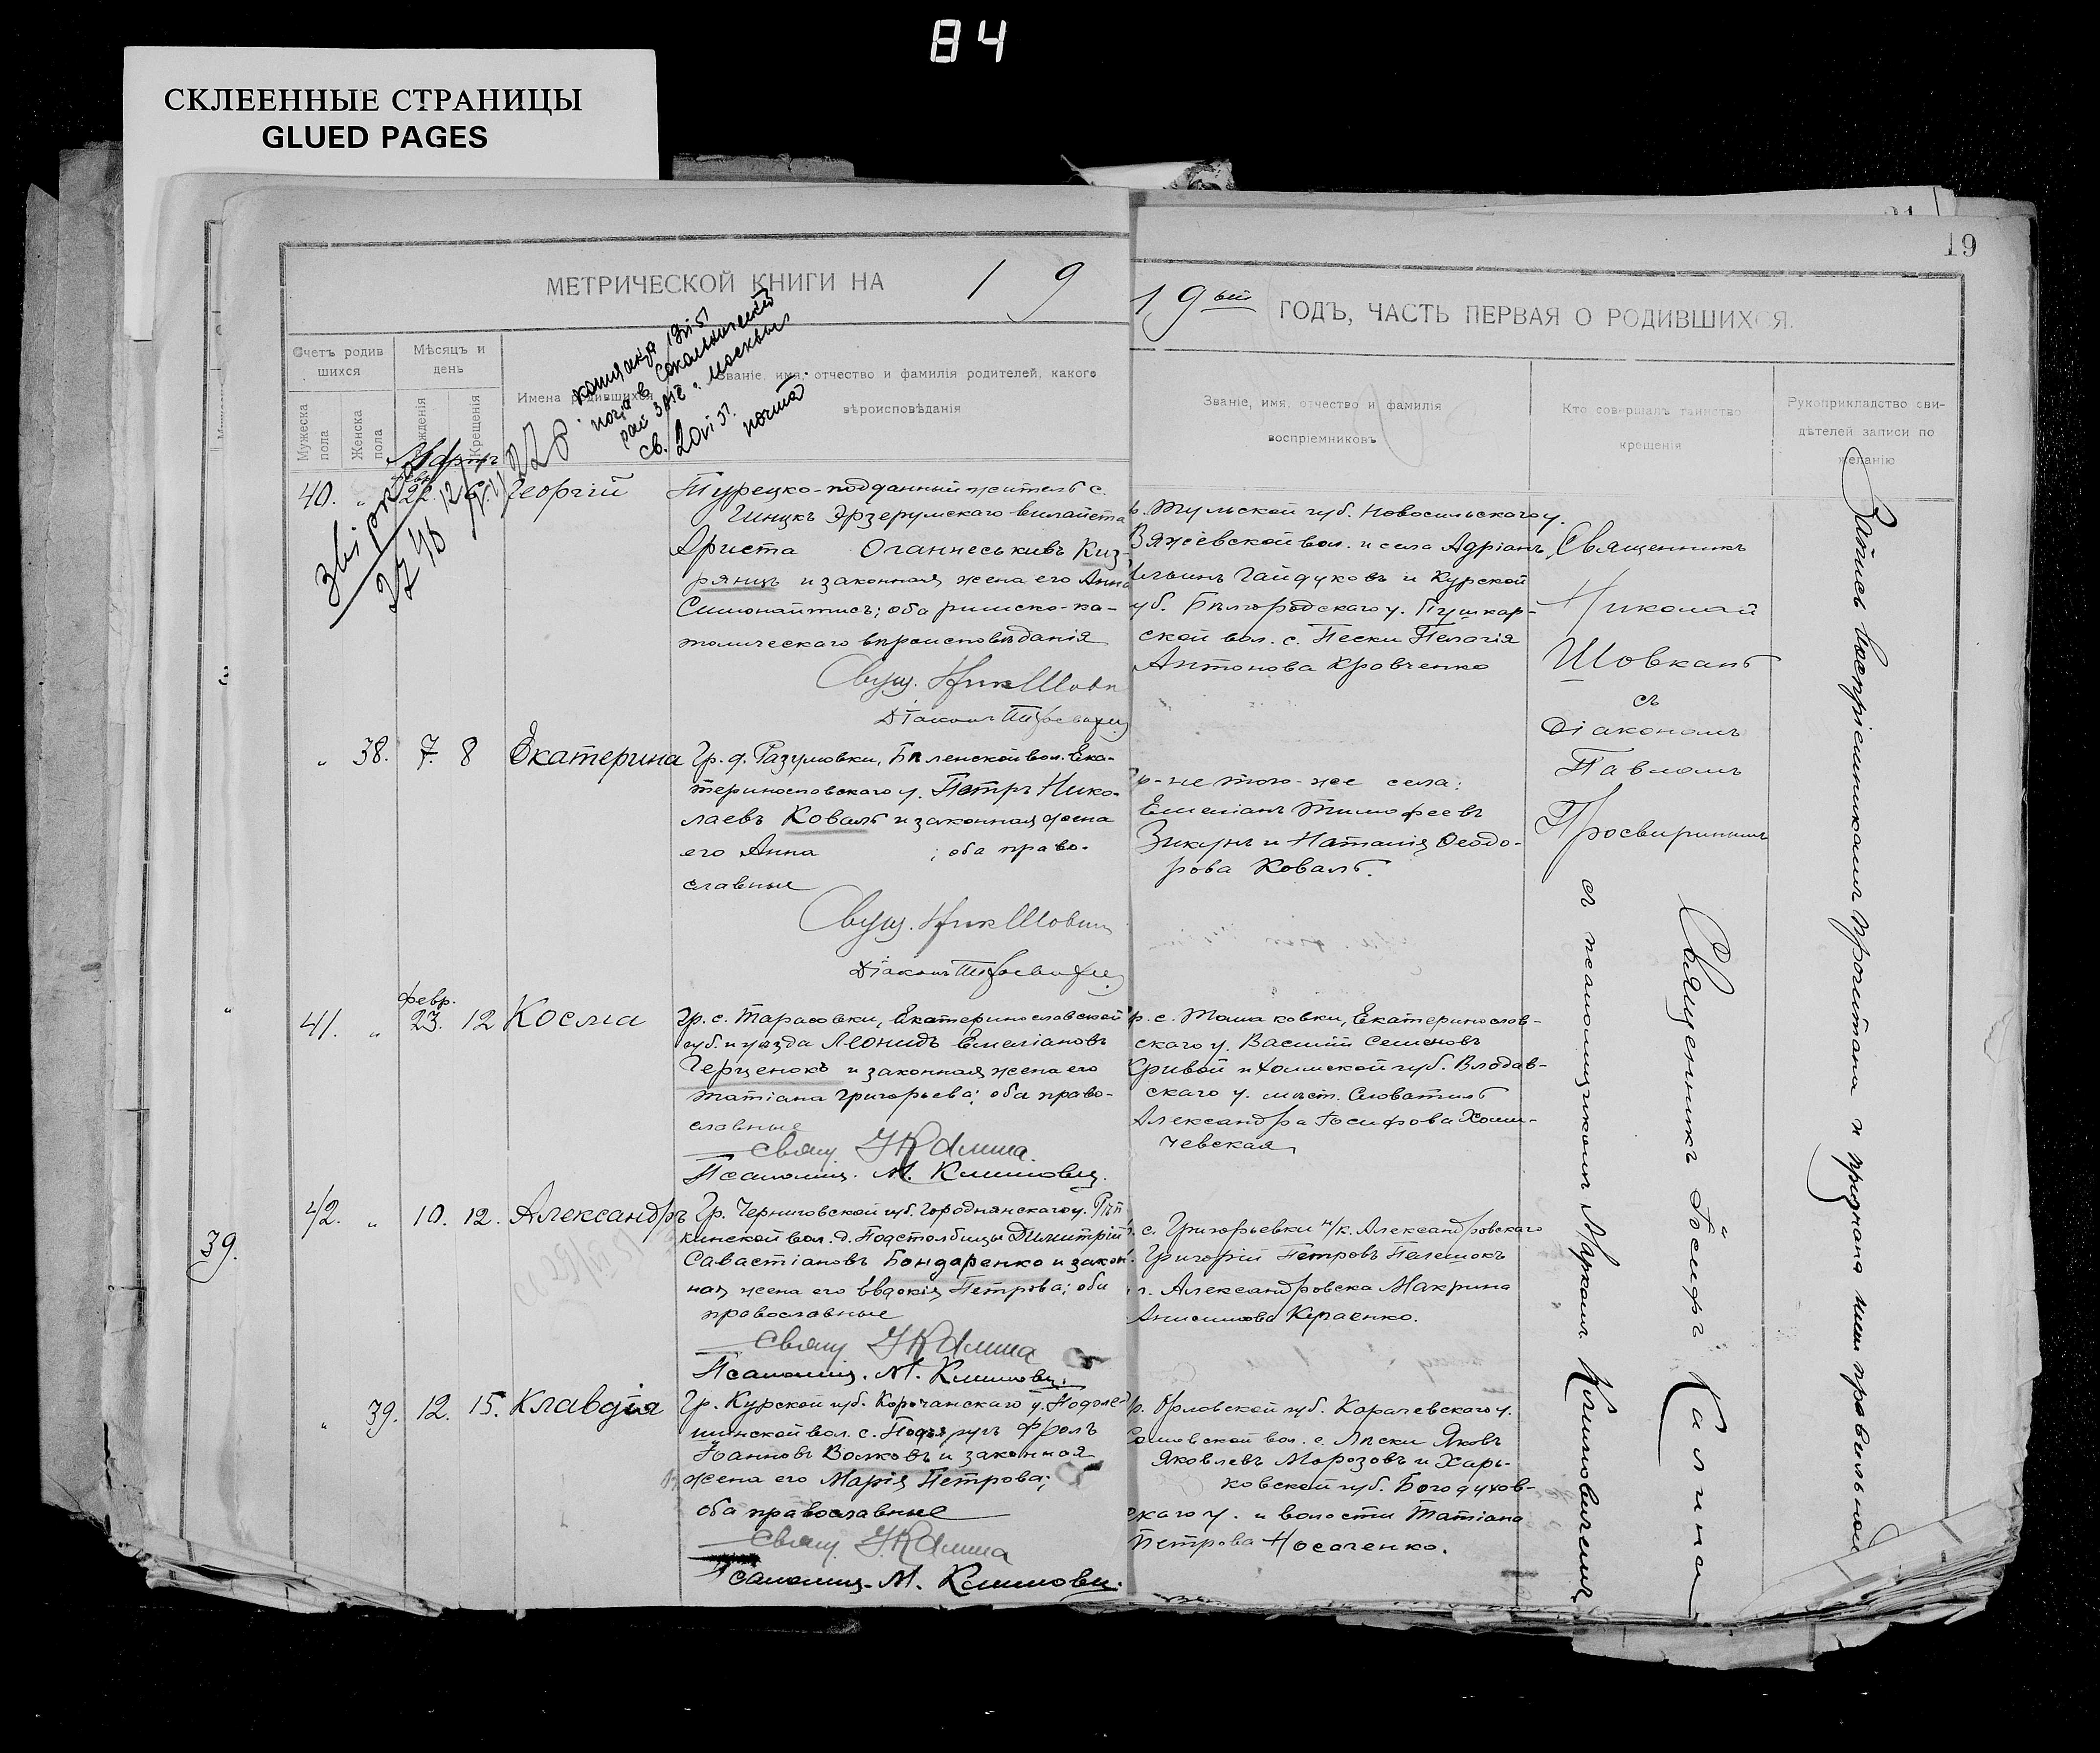 84
СКЛЕЕННЫЕ СТРАНИЦЫ
GLUED PAGES
19
МЕТРИЧЕСКОЙ КНИГИ НА 1 9
19ый ГОДЪ, ЧАСТЬ ПЕРВАЯ О РОДИВШИХСЯ.
Счетъ родив
шихся
Мужеска пола
Женска пола
Мѣсяцъ и
день
Рожденія
Крещенія
Имена родившихся
Званіе, имя, отчество и фамилія родителей, какого
вѣроисповѣданія
Званіе, имя, отчество и фамилія
воспріемниковъ
Кто совершалъ таинство
крещенія
Рукоприкладство сви-
дѣтелей записи по
желанію
228
Мартъ
40. " февр. 22. Георгій
Турецко-подданный житель с.
Эрзерумскаго вилайета
Ариста Оганнеськивъ Киз-
рянцъ и законная жена его Анна
оба римско-ка-
толическаго вѣроисповѣданія
Свящ. Ник Шовк
Діаконъ
р. Тульской губ. Новосильскаго у.
Вяжевской вол. и села Адріанъ
Ильинъ Гайдуковъ и Курской
губ. Бѣлгородскаго у. Пушкар-
ской вол. с. Пески Пелагія
Антонова Кровченко
Священникъ
Николай
Шовкань
съ
Діакономъ
Павломъ
Просвирнинымъ
" 38. 7. 8 Екатерина
Гр. д. Разумовки, Бѣленской вол. Ека-
теринославскаго у. Петръ Нико-
лаевъ Коваль и законная жена
его Анна ; оба право-
славные
Свящ. Ник Шовкан
Діаконъ
р-не того-же села:
Емеліанъ Тимофеевъ
Зикунъ и Наталія Феодо-
рова Коваль.
41. " февр. 23. 12 Косма
Гр. с. Тарасовки, Екатеринославской
губ. и уѣзда Леонидъ Емеліановъ
Герценокъ и законная жена его
Татіана Григорьева; оба право-
славные
Свящ І Калина
Псаломщ. М. Климович.
р. с. Томаковки, Екатеринослав-
скаго у. Василій Семеновъ
Кривой и Холмской губ. Влодав-
скаго у. мѣст. Словатичъ
Александра Іосифова Хоми-
чевская
39.
42. " 10. 12. Александръ
Гр. Черниговской губ. Городнянскаго у. Рѣп
кинской вол. д. Подстолбицы Димитрій
Савастіановъ Бондаренко и закон
ная жена его Евдокія Петрова; оба
православные
Свящ І Калина
Псаломщ. М. Климович.
с. Григорьевки н/к. Александровскаго
Григорій Петровъ Пелешокъ
г. Александровска Макрина
Анисимова Куценко.
" 39. 12. 15. Клавдія
Гр. Курской губ. Корочанскаго у.
вол. с. Подъяруги Фролъ
Іоанновъ Волковъ и законная
жена его Марія Петрова;
оба православные
Свящ І. Калина
Псаломщ. М. Климович.
р. Орловской губ. Карачевскаго у.
вол. с. Лѣски Яковъ
Яковлевъ Морозовъ и Харь-
ковской губ. Богодухов-
скаго у. и волости Татіана
Петрова Носаченко.
съ псаломщикомъ Маркомъ Климовичемъ
Священникъ Іосифъ Калина
Запись воспріемникамъ прочитана и признана ими правильною